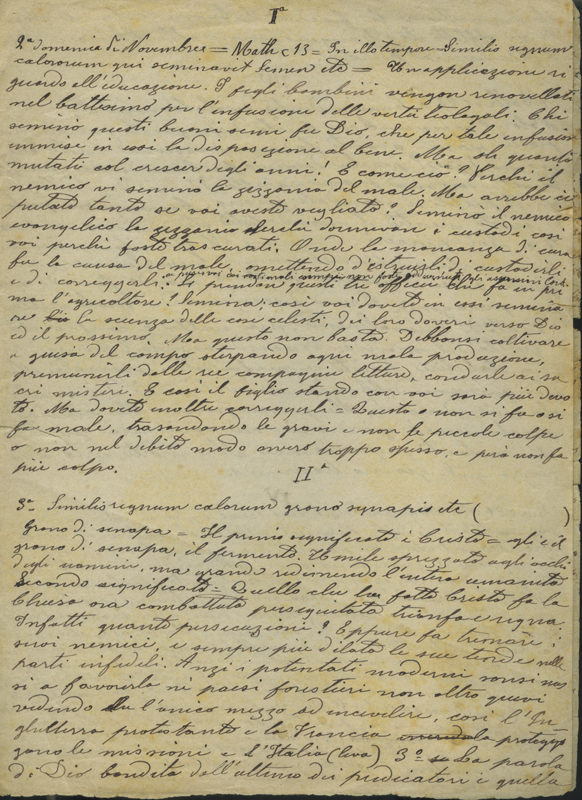 Iª
2ª Domenica di Novembre = Math c 13 = In illo tempore Similis regnum
calorum qui seminavit Semen etc = Un applicazione ri-
guardo all'educazione. I figli bambini vengon renovellati
nel battesimo per l'infusione delle virtù teologali. Chi
seminò questi buoni semi fu Dio, che per tale infusion
immise in essi la disposizione al bene. Ma oh quanti
mutati col crescer degli anni! E come ciò? Perchè il
nemico vi seminò la zizzania del male. Ma avrebbe ei
potuto tanto se voi aveste vegliato? Seminò il nemico
evangelico la zizzania perchè dormivan i custodi così
voi perchè foste trascurati. Onde la mancanza di cura
fu la causa del male, omettendo d'istruirli, di custodirli
e di correggerli. questi tre officii fa in pri
ma l'agricoltore? Semina: così voi dovete in essi semina
re la scienza delle cose celesti, dei loro doveri verso Dio
ed il prossimo. Ma questo non basta. Debbonsi coltivare
a guisa del campo sterpando ogni mala produzione,
premunirli dalle ree compagnie letture, condurli ai sa
cri misteri. E così il figlio stando con voi sarà più devo
to. Ma dovete inoltre correggerli = Questo o non si fa o si
fa male, trasandando le gravi e non le piccole colpe
o non nel debito modo ovvero troppo spesso, e però non fa
più colpo.
IIª
3ª Similis regnum calorum grano synapis etc ( )
Grano di senapa = Il primo significato è Cristo = egli è il
grano di senapa, il fermento. Umile sprezzato agli occhi
degli uomini, ma grande redimendo l'intera umanità
Secondo significato = Quello che fu fatto Cristo fu la
Chiesa ora combattuta perseguitata trionfa e regna.
Infatti quante persecuzioni? Eppure fa trionare i
suoi nemici, e sempre più dilata le sue tende nelle
parti infedeli. Anzi i potentati moderni
si a favorirla ne' paesi forestieri non altro quivi
vedendo l'unico mezzo ad incivilire, così l'In
ghilterra protestante e la Francia proteggo
gono le missioni e l'Italia 3º La parola
di Dio bandita dall'ultimo dei predicatori è quella